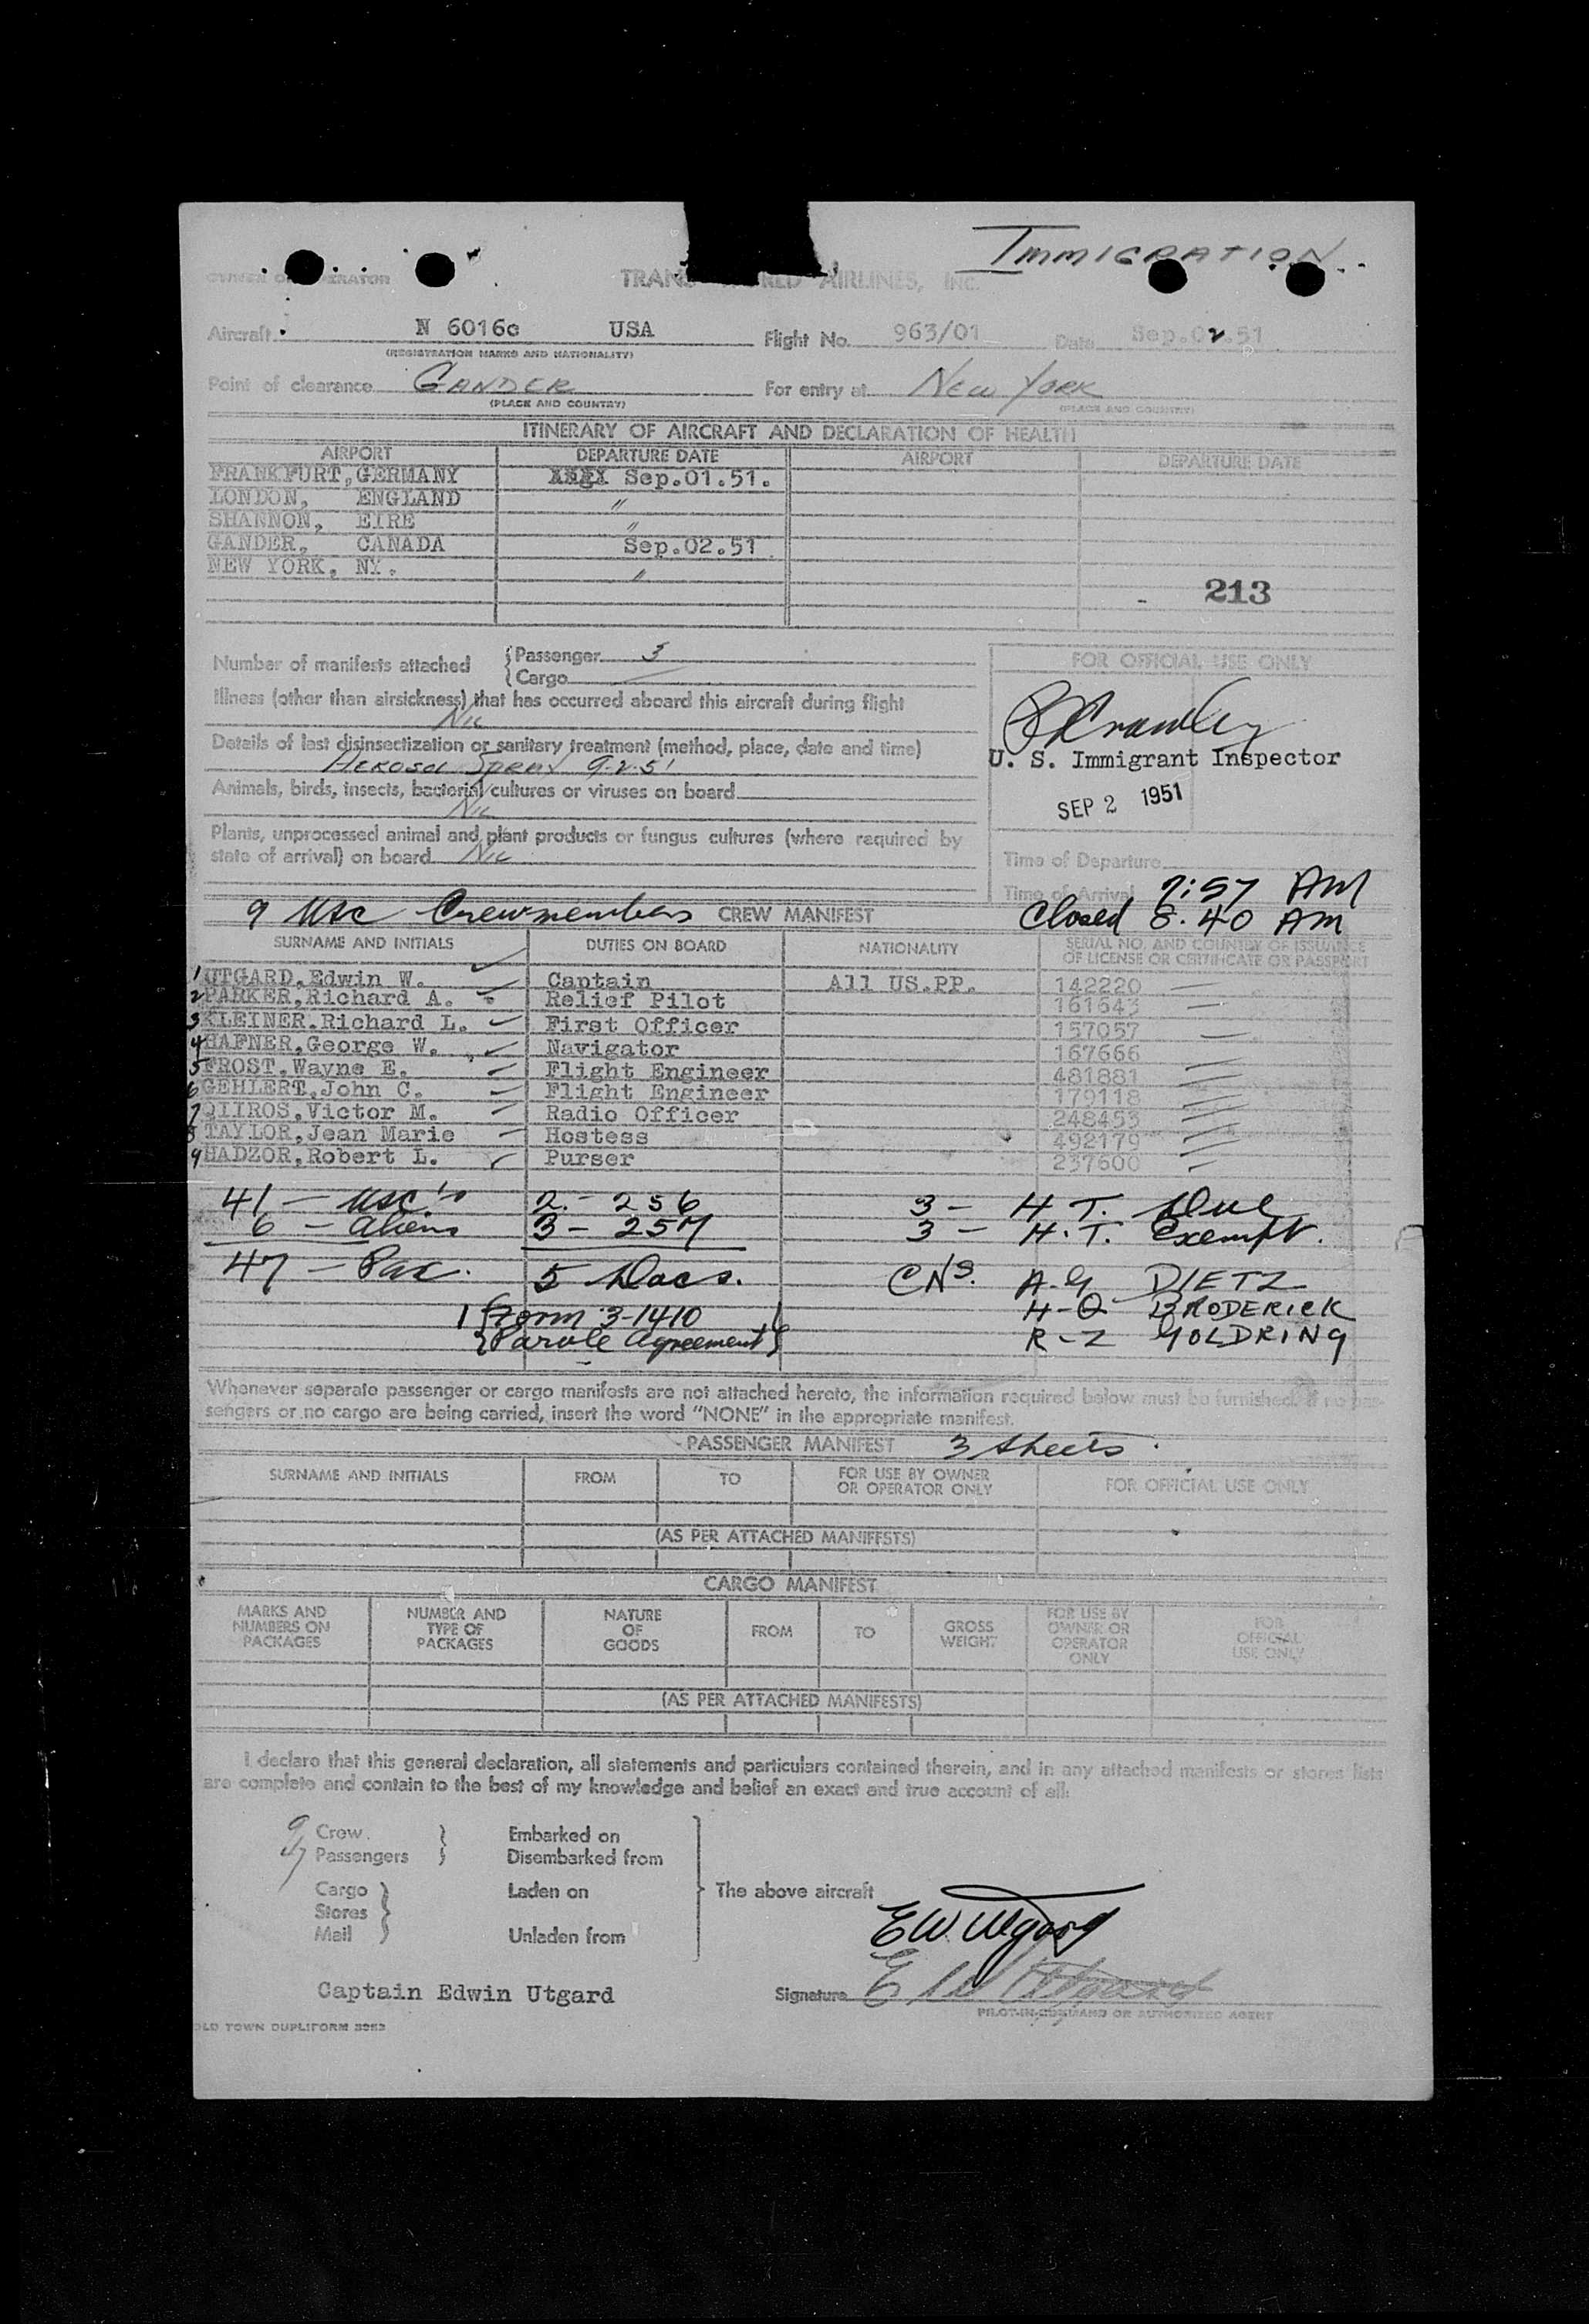 IMMIGRATION
OWNER OR OPERATOR TRANS WORLD AIRLINES, INC.
Aircraft N 6016c USA Flight No. 963/01 Date Sep.02.51
(REGISTRATION MARKS AND NATIONALITY)
Point of clearance GANDER For entry at NEW YORK
(PLACE AND COUNTRY) (PLACE AND COUNTRY)
ITINERARY OF AIRCRAFT AND DECLARATION OF HEALTH
AIRPORT DEPARTURE DATE AIRPORT DEPARTURE DATE
FRANKFURT, GERMANY Sep.01.51.
LONDON, ENGLAND "
SHANNON, EIRE "
GANDER, CANADA Sep.02.51
NEW YORK, NY. "
213
Number of manifests attached {Passenger 3
{Cargo
FOR OFFICIAL USE ONLY
Illness (other than airsickness) that has occurred aboard this aircraft during flight
NIL
Details of last disinsectization or sanitary treatment (method, place, date and time)
AEROSOL SPRAY 9-2-51
U. S. Immigrant Inspector
Animals, birds, insects, bacterial cultures or viruses on board
NIL
SEP 2 1951
Plants, unprocessed animal and plant products or fungus cultures (where required by
state of arrival) on board NIL
Time of Departure
Time of Arrival 7:57 AM
9 USC Crewmembers CREW MANIFEST Closed 8:40 AM
SURNAME AND INITIALS DUTIES ON BOARD NATIONALITY SERIAL NO. AND COUNTRY OF ISSUANCE
OF LICENSE OR CERTIFICATE OR PASSPORT
1 UTGARD, Edwin W. Captain All US.PP. 142220
2 PARKER, Richard A. Relief Pilot 161643
3 KLEINER, Richard L. First Officer 157057
4 HAFNER, George W. Navigator 167666
5 FROST, Wayne E. Flight Engineer 481881
6 GEHLERT, John C. Flight Engineer 179118
7 QIIROS, Victor M. Radio Officer 248453
8 TAYLOR, Jean Marie Hostess 492179
9 HADZOR, Robert L. Purser 237600
41 - USC's 2 - 256 3 - H.T. Due
6 - Aliens 3 - 257 3 - H.T. Exempt.
47 - Pax. 5 Docs. CNS. A-G DIETZ
1 {Form 3-1410 } H-Q BRODERICK
{Parole Agreement} R-Z GOLDRING
Whenever separate passenger or cargo manifests are not attached hereto, the information required below must be furnished. If no pas-
sengers or no cargo are being carried, insert the word "NONE" in the appropriate manifest.
PASSENGER MANIFEST 3 sheets
SURNAME AND INITIALS FROM TO FOR USE BY OWNER
OR OPERATOR ONLY FOR OFFICIAL USE ONLY
(AS PER ATTACHED MANIFESTS)
CARGO MANIFEST
MARKS AND NUMBERS ON PACKAGES NUMBER AND TYPE OF PACKAGES NATURE OF GOODS FROM TO GROSS WEIGHT FOR USE BY OWNER OR OPERATOR ONLY FOR OFFICIAL USE ONLY
(AS PER ATTACHED MANIFESTS)
I declare that this general declaration, all statements and particulars contained therein, and in any attached manifests or stores lists
are complete and contain to the best of my knowledge and belief an exact and true account of all:
9 Crew } Embarked on
47 Passengers } Disembarked from
Cargo } Laden on The above aircraft
Stores }
Mail } Unladen from
E W Utgard
Captain Edwin Utgard Signature E W Utgard
PILOT-IN-COMMAND OR AUTHORIZED AGENT
OLD TOWN DUPLIFORM